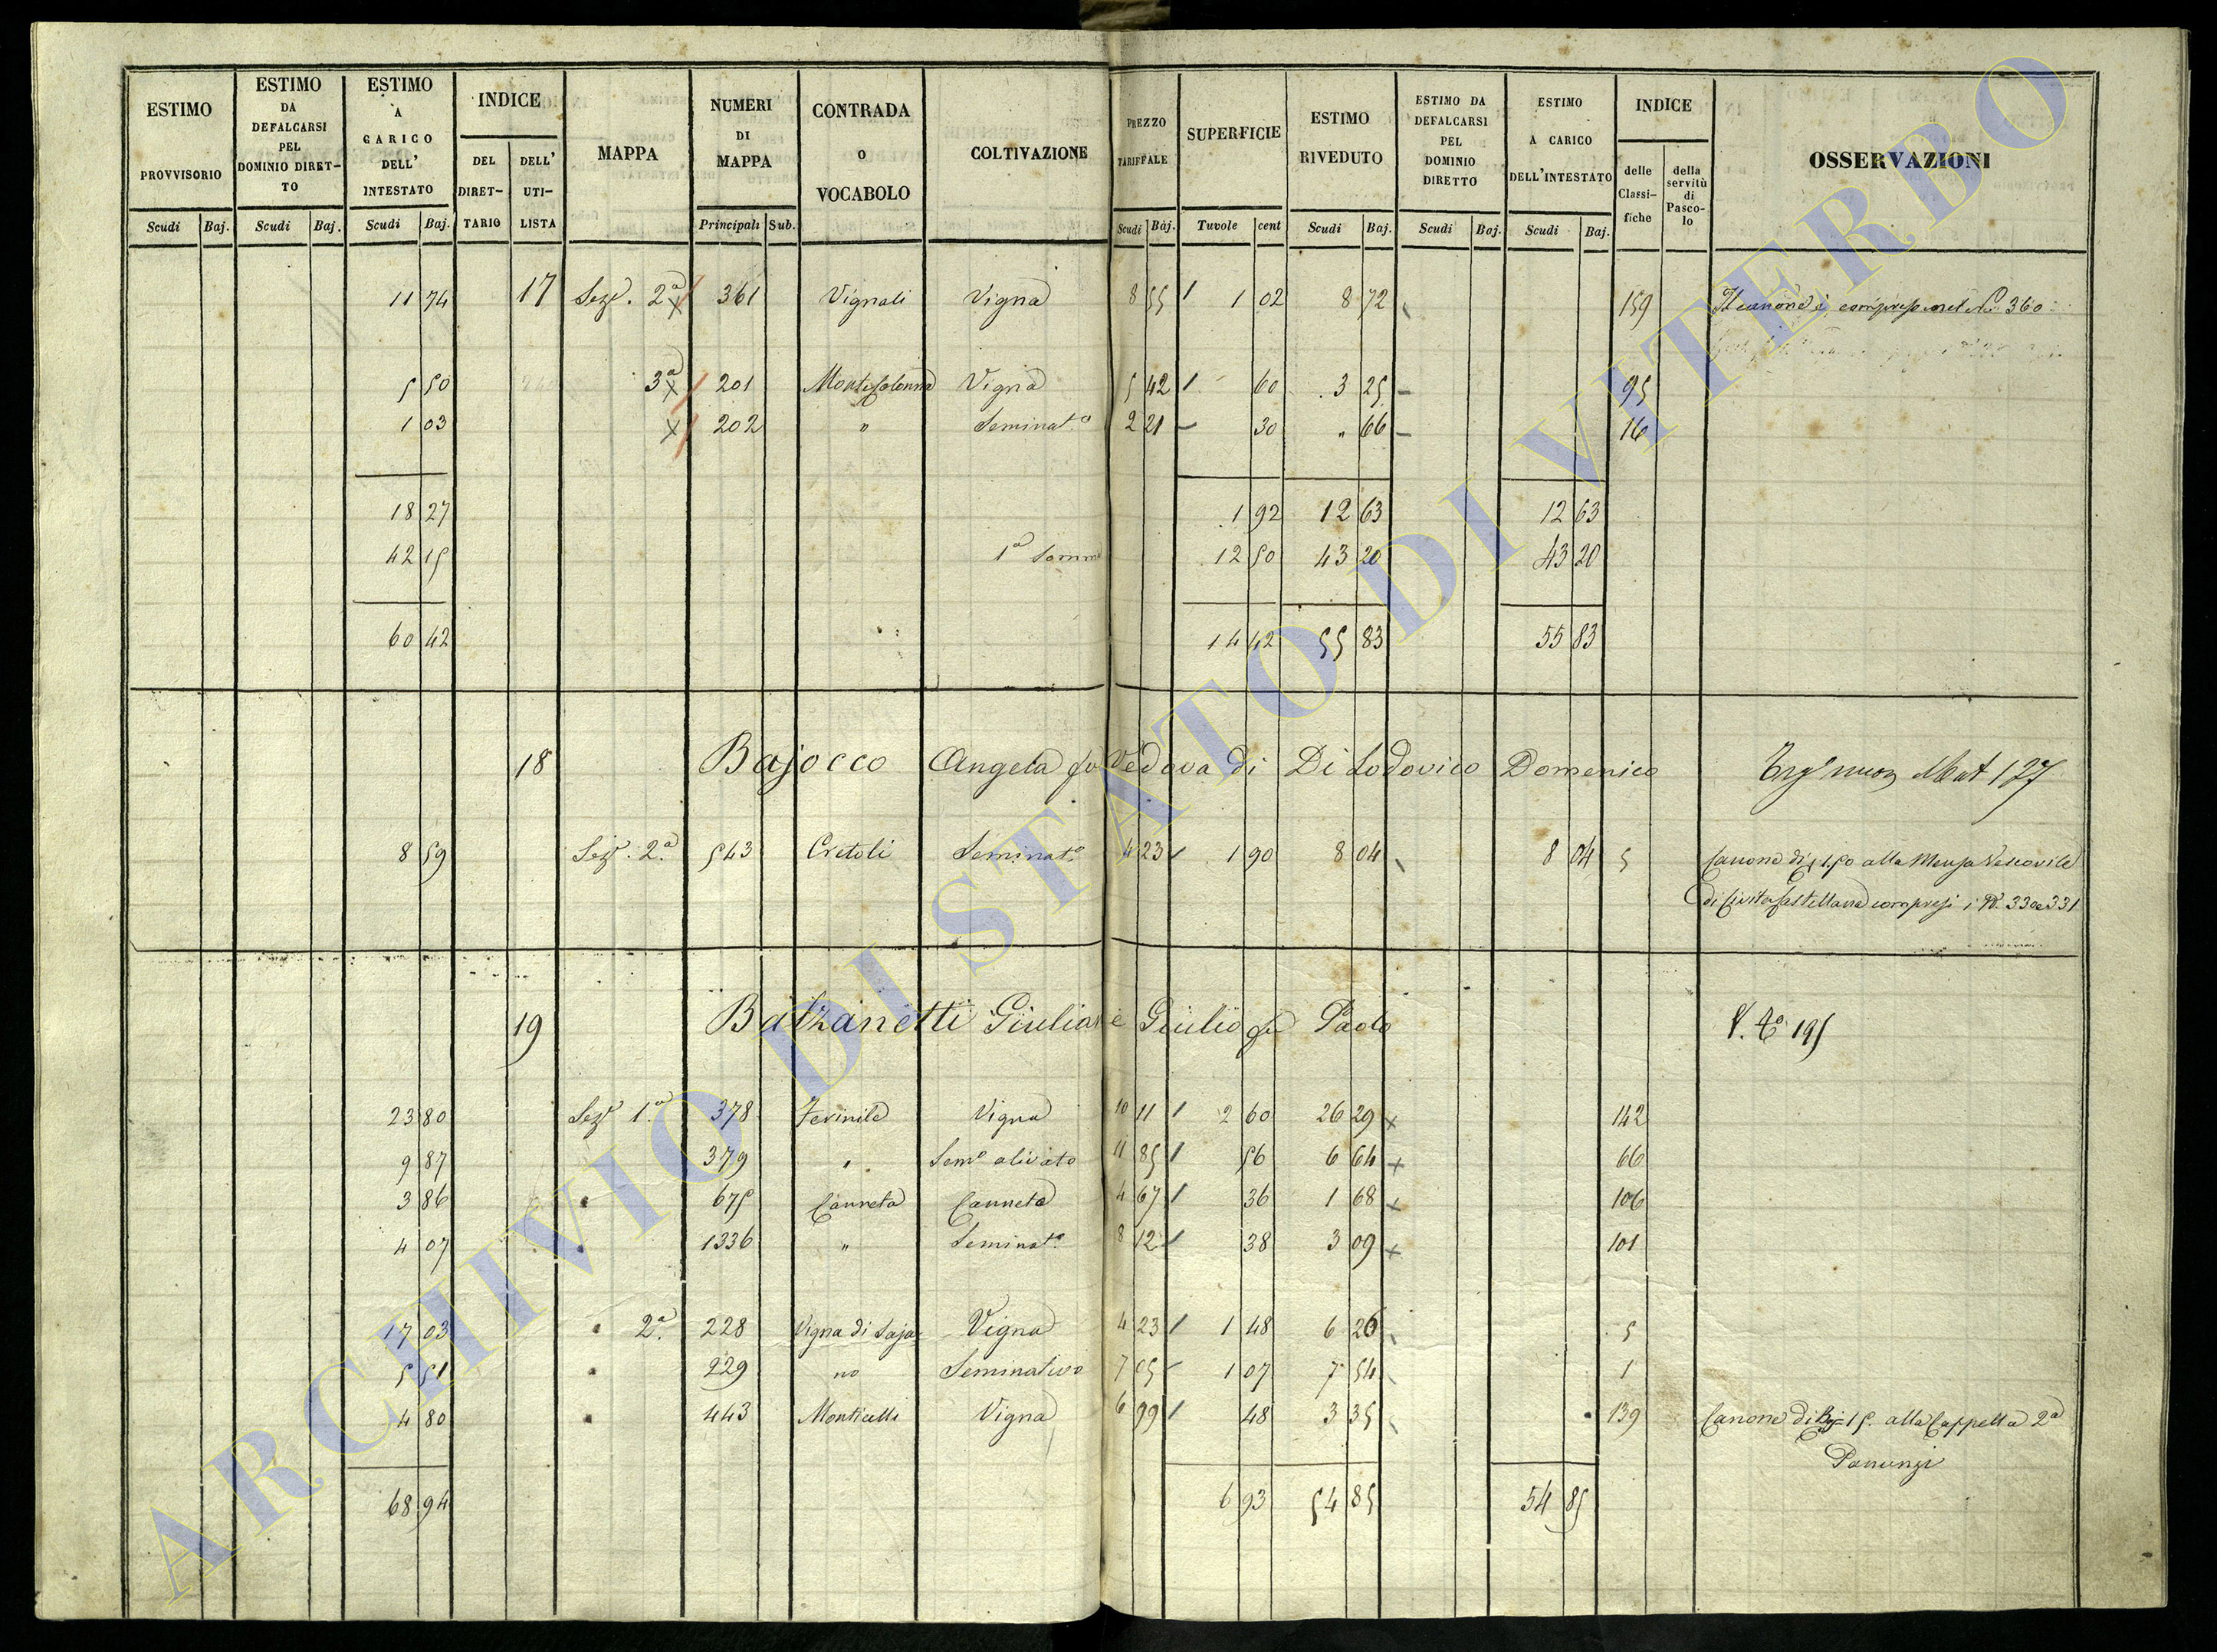 ESTIMO PROVVISORIO Scudi Baj.
ESTIMO DA DEFALCARSI PEL DOMINIO DIRETTO Scudi Baj.
ESTIMO A CARICO DELL' INTESTATO Scudi Baj.
INDICE DEL DIRETTARIO DELL' UTILISTA
MAPPA
NUMERI DI MAPPA Principali Sub.
CONTRADA O VOCABOLO
COLTIVAZIONE
PREZZO TARIFFALE Scudi Baj.
SUPERFICIE Tavole cent
ESTIMO RIVEDUTO Scudi Baj.
ESTIMO DA DEFALCARSI PEL DOMINIO DIRETTO Scudi Baj.
ESTIMO A CARICO DELL'INTESTATO Scudi Baj.
INDICE delle Classifiche della servitù di Pascolo
OSSERVAZIONI
11 74 17 Seze. 2a 361 Vignali Vigna 8 55 1 02 8 72 159 Il canone è compreso nel No. 360
5 50 3a 201 Vigna 5 42 60 3 25 95
1 03 202 " Seminato 2 21 30 " 66 16
18 27 1 92 12 63 12 63
42 15 1a Somma 12 50 43 20 43 20
60 42 14 42 55 83 55 83
18 Bajocco Angela fu Vedova di Di Lodovico Domenico 127
8 59 Seze. 2a 543 Cretoli Seminato 4 23 1 90 8 04 8 04 5 Canone di 1.50 alla Mensa Vescovile
di Civita Castellana compresi i N. 330e331
19 Balzanetti Giulia e Giulio fu Paolo 195
23 80 Seze 1a 378 Ferinile Vigna 10 11 2 60 26 29 142
9 87 379 " Semo olivato 11 85 56 6 64 66
3 86 " 675 Canneta Canneto 4 67 36 1 68 106
4 07 " 1336 " Seminato 8 12 38 3 09 101
17 03 " 2a 228 Vigna di Vigna 4 23 1 48 6 26 5
5 51 " 229 no Seminativo 7 05 1 07 7 54 1
4 80 " 443 Monticelli Vigna 6 99 48 3 35 139 Canone di Baj 15. alla Cappella 2a
Panunzi
68 94 6 93 54 85 54 85
ARCHIVIO DI STATO DI VITERBO